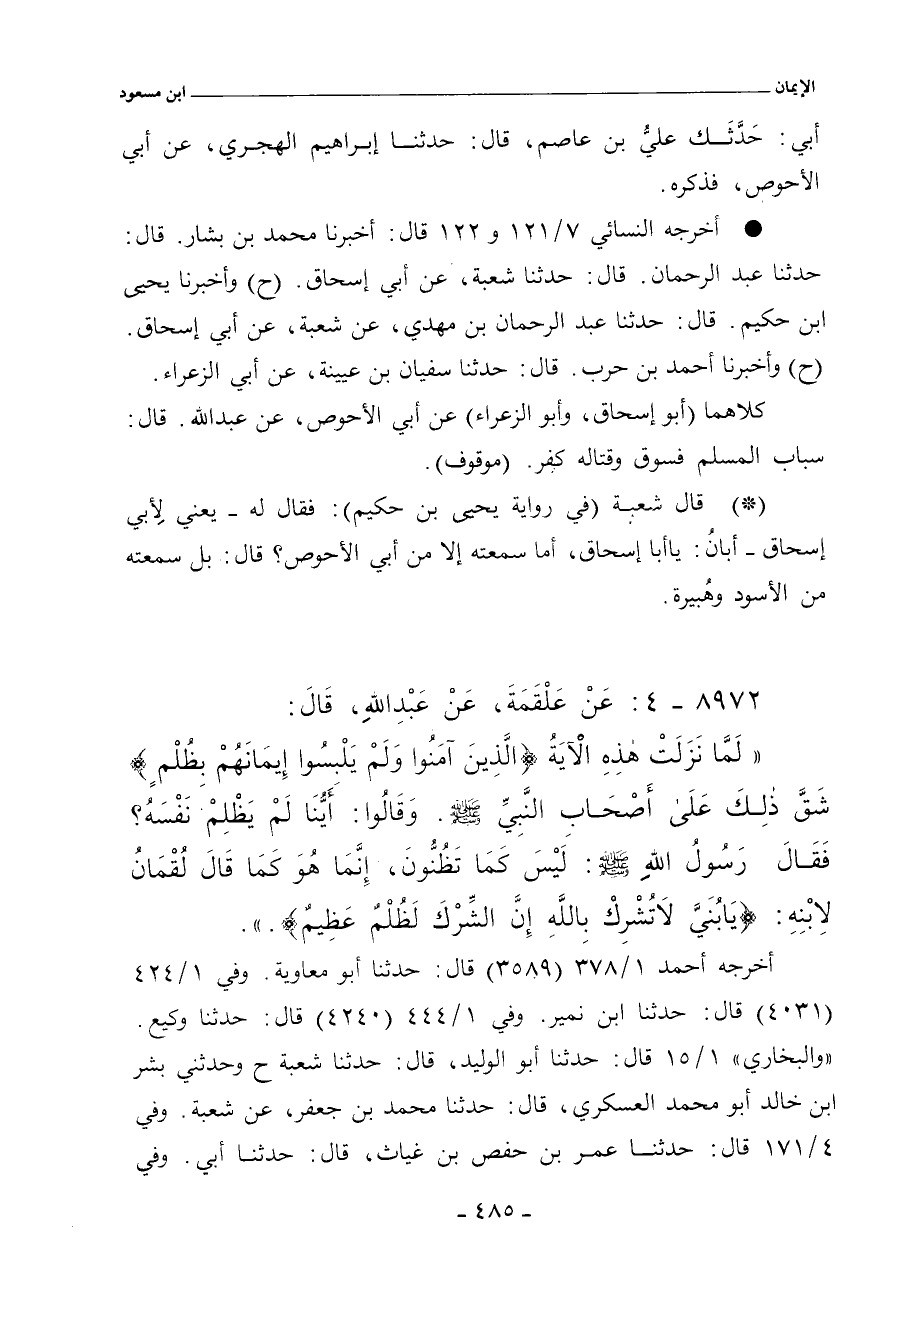 الإيمان ابن مسعود
أبي: حَدَّثَـك عليُّ بن عاصم، قال: حدثنـا إبـراهيم الهجري، عن أبي
الأحوص، فذكره.
● أخرجه النسائي ١٢١/٧ و ١٢٢ قال: أخبرنا محمد بن بشار. قال:
حدثنا عبد الرحمان. قال: حدثنا شعبة، عن أبي إسحاق. (ح) وأخبرنا يحيى
ابن حكيم. قال: حدثنا عبد الرحمان بن مهدي، عن شعبة، عن أبي إسحاق.
(ح) وأخبرنا أحمد بن حرب. قال: حدثنا سفيان بن عيينة، عن أبي الزعراء.
كلاهما (أبو إسحاق، وأبو الزعراء) عن أبي الأحوص، عن عبدالله. قال:
سباب المسلم فسوق وقتاله كفر. (موقوف).
(*) قال شعبـة (في رواية يحيى بن حكيم): فقال له ـ يعني لِأبي
إسحاق ـ أبانُ: ياأبا إسحاق، أما سمعته إلا من أبي الأحوص؟ قال: بل سمعته
من الأسود وهُبيرة.
٨٩٧٢ ـ ٤: عَنْ عَلْقَمَةَ، عَنْ عَبْدِاللهِ، قَالَ:
« لَمَّا نَزَلَتْ هٰذِهِ الْآيَةُ ﴿الَّذِينَ آمَنُوا وَلَمْ يَلْبِسُوا إِيمَانَهُمْ بِظُلْمٍ﴾
شَقَّ ذٰلِـكَ عَلَىٰ أَصْحَـابِ النَّبِيِّ ﷺ. وَقَالُوا: أَيُّنَا لَمْ يَظْلِمْ نَفْسَهُ؟
فَقَـالَ رَسُولُ اللهِ ﷺ: لَيْسَ كَمَا تَظُنُّونَ، إِنَّمَا هُوَ كَمَا قَالَ لُقْمَانُ
لِابْنِهِ: ﴿يَابُنَيَّ لَاتُشْرِكْ بِاللَّهِ إِنَّ الشِّرْكَ لَظُلْمٌ عَظِيمٌ﴾.».
أخرجه أحمد ٣٧٨/١ (٣٥٨٩) قال: حدثنا أبو معاوية. وفي ٤٢٤/١
(٤٠٣١) قال: حدثنا ابن نمير. وفي ٤٤٤/١ (٤٢٤٠) قال: حدثنا وكيع.
«والبخاري» ١٥/١ قال: حدثنا أبو الوليد، قال: حدثنا شعبة ح وحدثني بشر
ابن خالد أبو محمد العسكري، قال: حدثنا محمد بن جعفر، عن شعبة. وفي
١٧١/٤ قال: حدثنـا عمـر بن حفص بن غياث، قال: حدثنـا أبي. وفي
ـ ٤٨٥ ـ